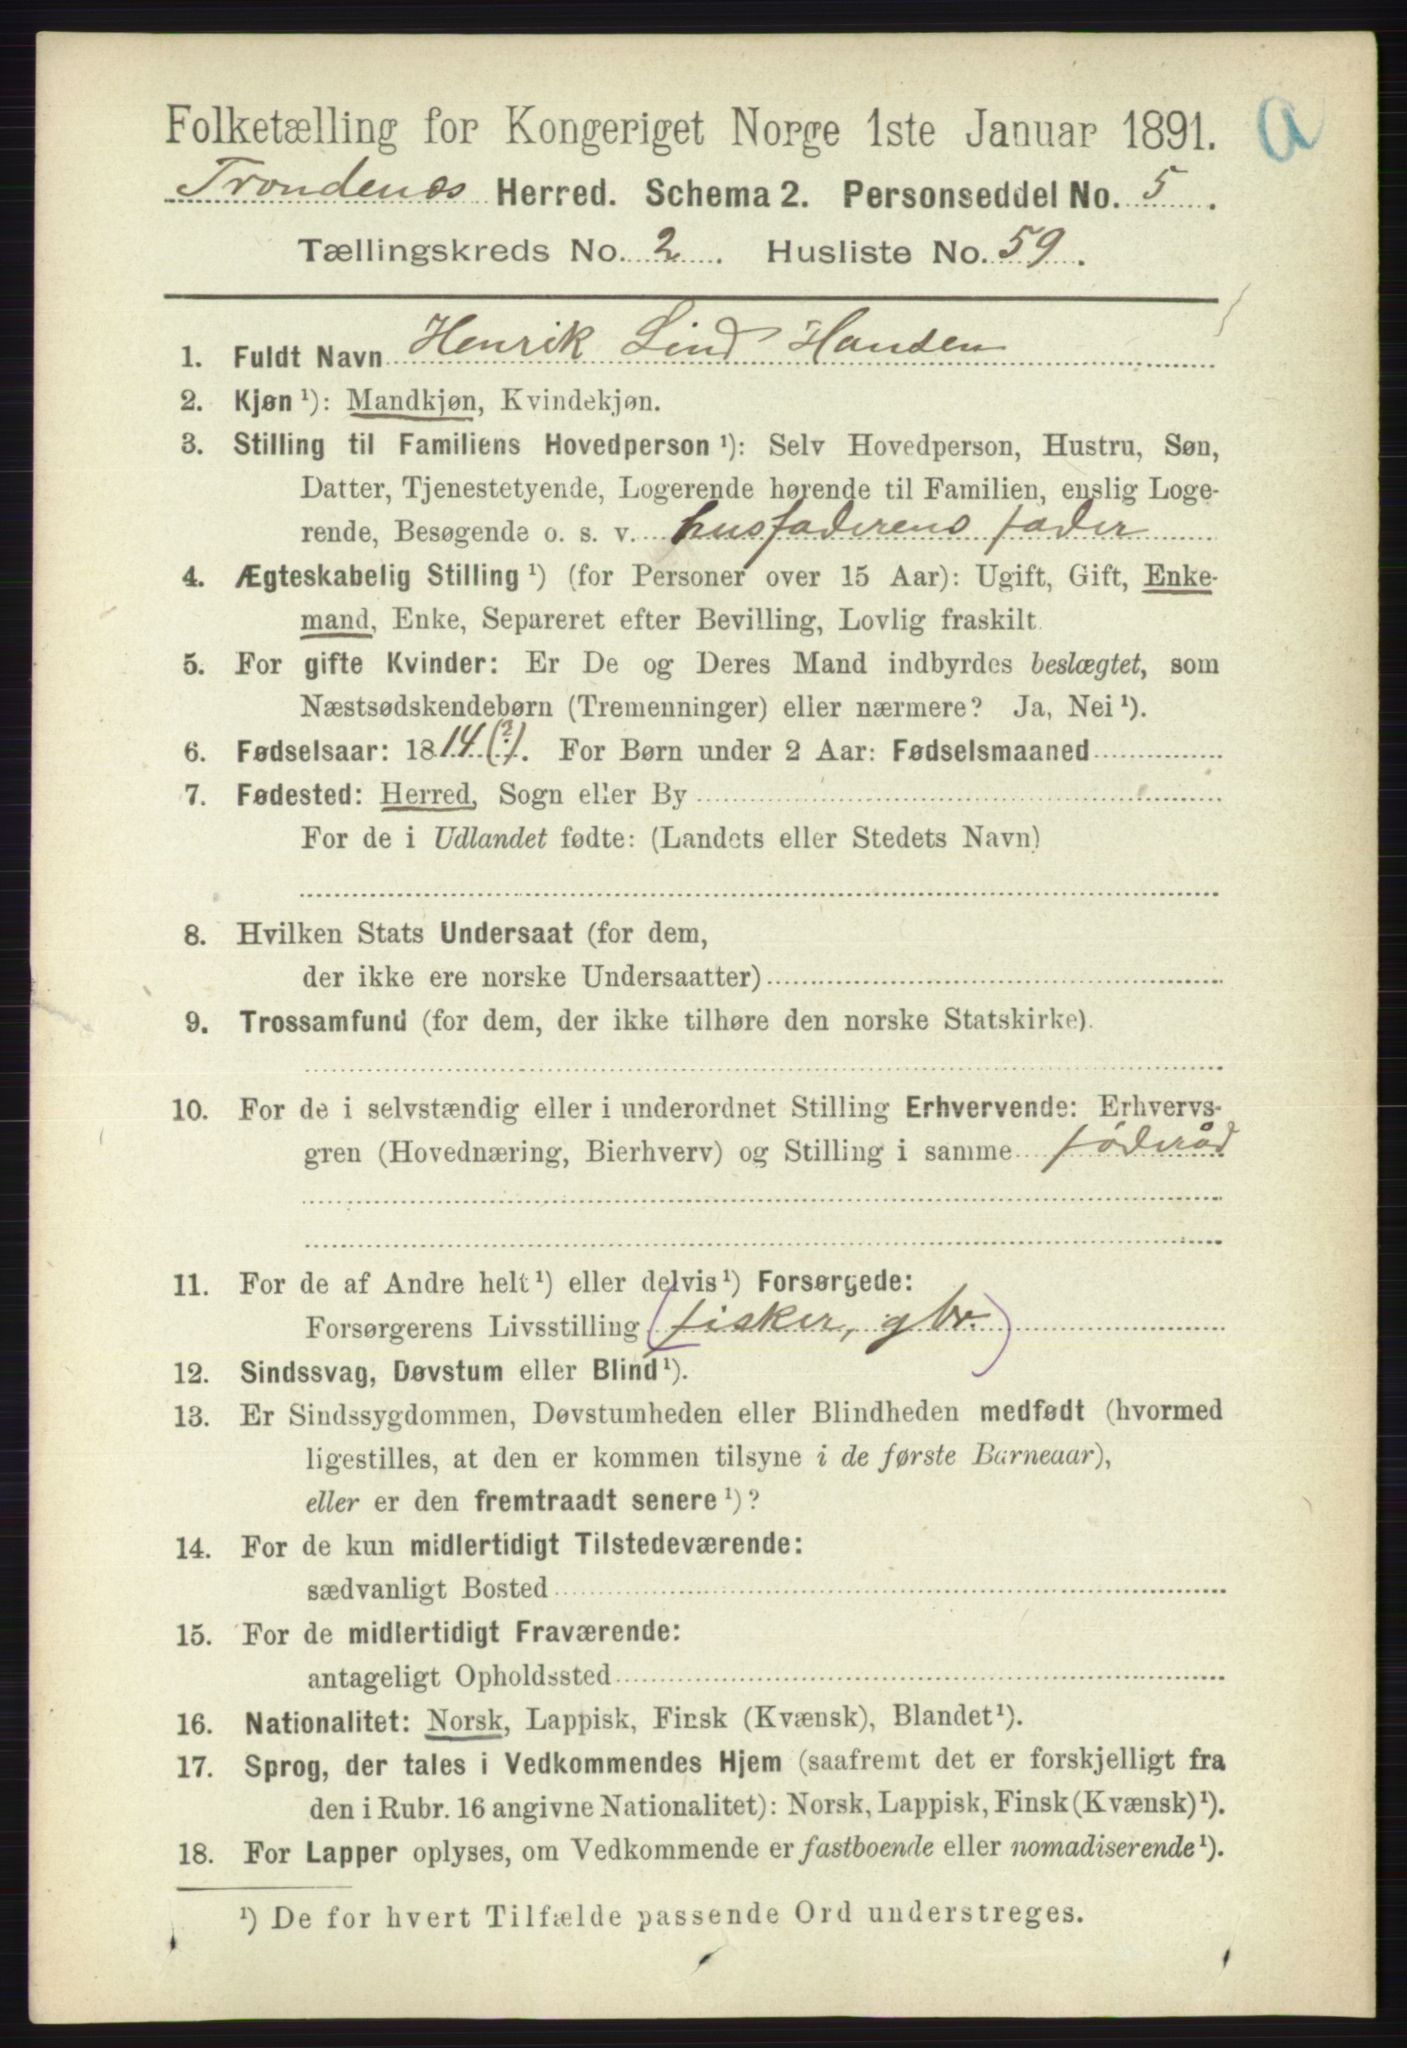 Folketælling for Kongeriget Norge 1ste Januar 1891.
a
Trondenæs Herred. Schema 2. Personseddel No. 5.
Tællingskreds No. 2. Husliste No. 59.
1. Fuldt Navn Henrik Lind Hansen
2. Kjøn ¹): Mandkjøn, Kvindekjøn.
3. Stilling til Familiens Hovedperson ¹): Selv Hovedperson, Hustru, Søn,
Datter, Tjenestetyende, Logerende hørende til Familien, enslig Loge-
rende, Besøgende o. s. v. husfaderens fader
4. Ægteskabelig Stilling ¹) (for Personer over 15 Aar): Ugift, Gift, Enke-
mand, Enke, Separeret efter Bevilling, Lovlig fraskilt.
5. For gifte Kvinder: Er De og Deres Mand indbyrdes beslægtet, som
Næstsødskendebørn (Tremenninger) eller nærmere? Ja, Nei ¹).
6. Fødselsaar: 1814(?). For Børn under 2 Aar: Fødselsmaaned
7. Fødested: Herred, Sogn eller By
For de i Udlandet fødte: (Landets eller Stedets Navn)
8. Hvilken Stats Undersaat (for dem,
der ikke ere norske Undersaatter)
9. Trossamfund (for dem, der ikke tilhøre den norske Statskirke).
10. For de i selvstændig eller i underordnet Stilling Erhvervende: Erhvervs-
gren (Hovednæring, Bierhverv) og Stilling i samme föderåd
11. For de af Andre helt ¹) eller delvis ¹) Forsørgede:
Forsørgerens Livsstilling (fisker, gbr.)
12. Sindssvag, Døvstum eller Blind ¹).
13. Er Sindssygdommen, Døvstumheden eller Blindheden medfødt (hvormed
ligestilles, at den er kommen tilsyne i de første Barneaar),
eller er den fremtraadt senere ¹)?
14. For de kun midlertidigt Tilstedeværende:
sædvanligt Bosted
15. For de midlertidigt Fraværende:
antageligt Opholdssted
16. Nationalitet: Norsk, Lappisk, Finsk (Kvænsk), Blandet ¹).
17. Sprog, der tales i Vedkommendes Hjem (saafremt det er forskjelligt fra
den i Rubr. 16 angivne Nationalitet): Norsk, Lappisk, Finsk (Kvænsk) ¹).
18. For Lapper oplyses, om Vedkommende er fastboende eller nomadiserende ¹).
¹) De for hvert Tilfælde passende Ord understreges.